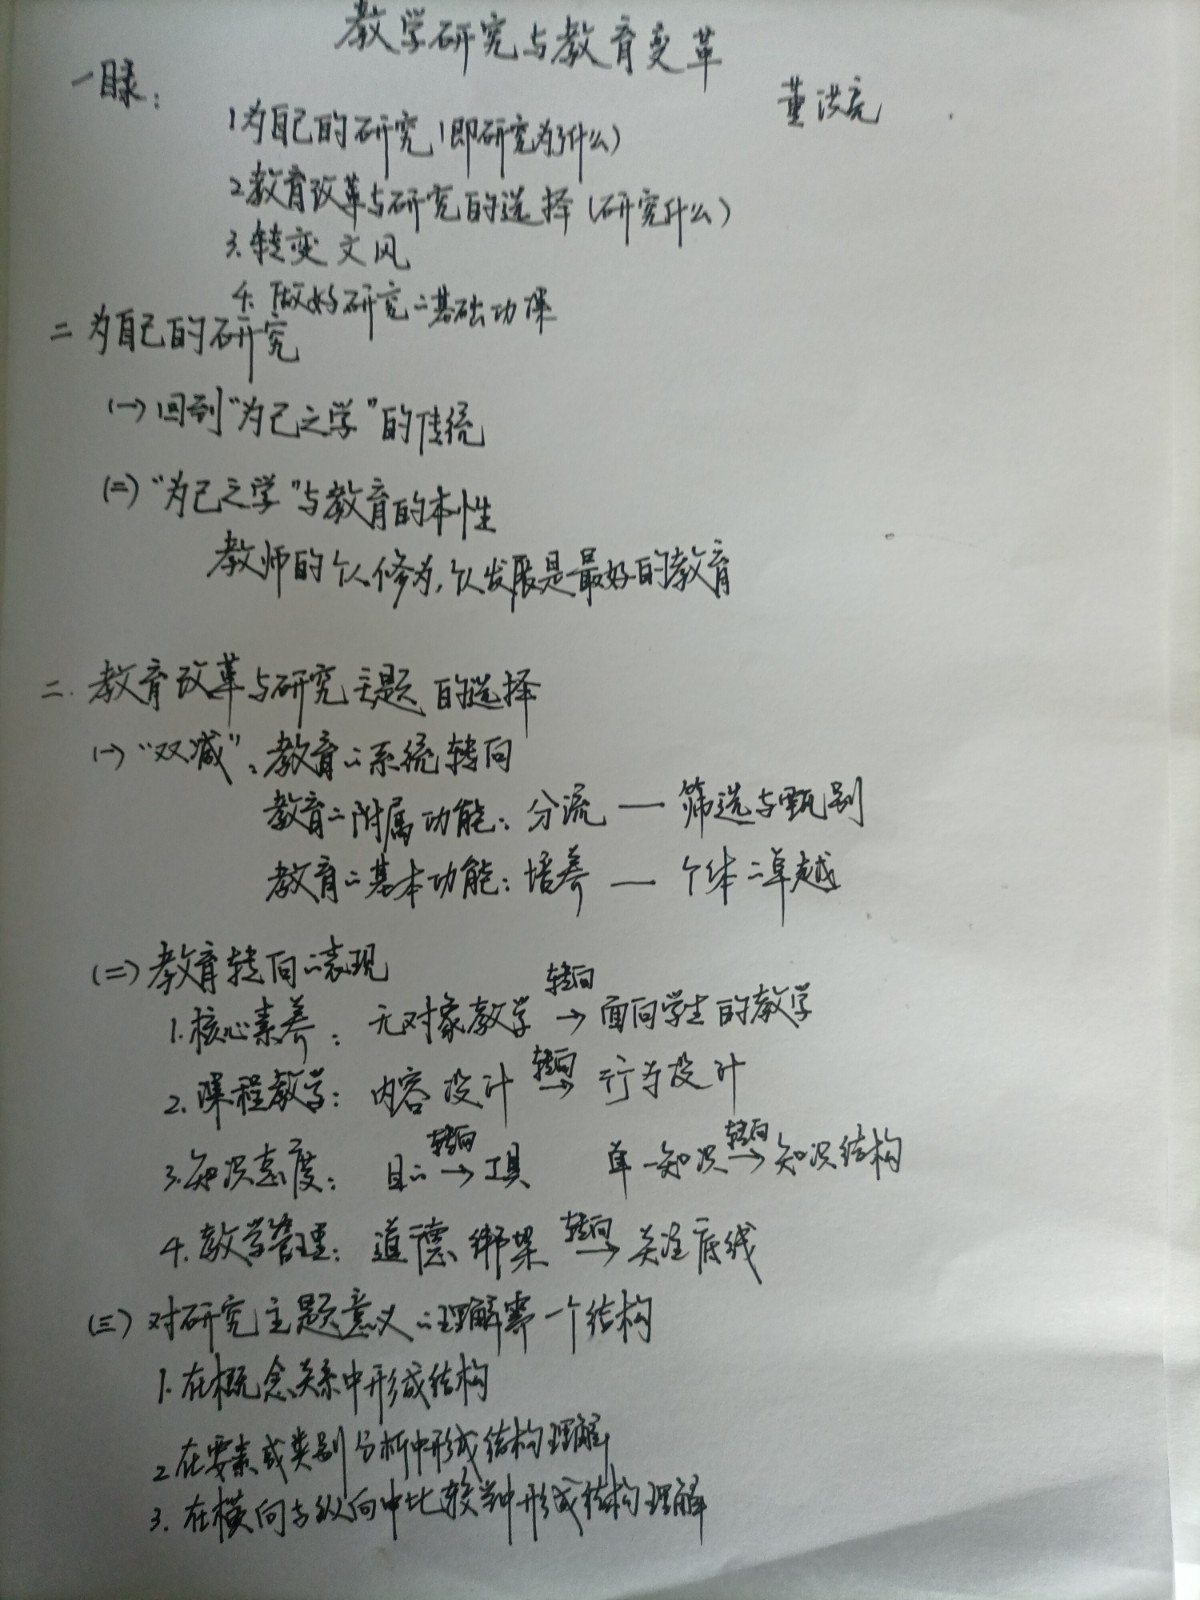 教学研究与教育变革
董洪亮
一目录：
1为自己的研究（即研究为了什么）
2.教育改革与研究的选择（研究什么）
3.转变文风
4.做好研究的基础功课
二为自己的研究
(一)回到“为己之学”的传统
(二)“为己之学”与教育的本性
教师的个人修为，个人发展是最好的教育
二.教育改革与研究主题的选择
(一)“双减”：教育的系统转向
教育的附属功能：分流——筛选与甄别
教育的基本功能：培养——个体的卓越
(二)教育转向的表现
1.核心素养：无对象教学 转向→ 面向学生的教学
2.课程教学：内容设计 转向→ 行为设计
3.知识态度：目的 转向→ 工具 单一知识 转向→ 知识结构
4.教学管理：道德绑架 转向→ 关注底线
(三)对研究主题意义的理解需一个结构
1.在概念关系中形成结构
2在要素或类别分析中形成结构理解
3.在横向与纵向中比较当中形成结构理解